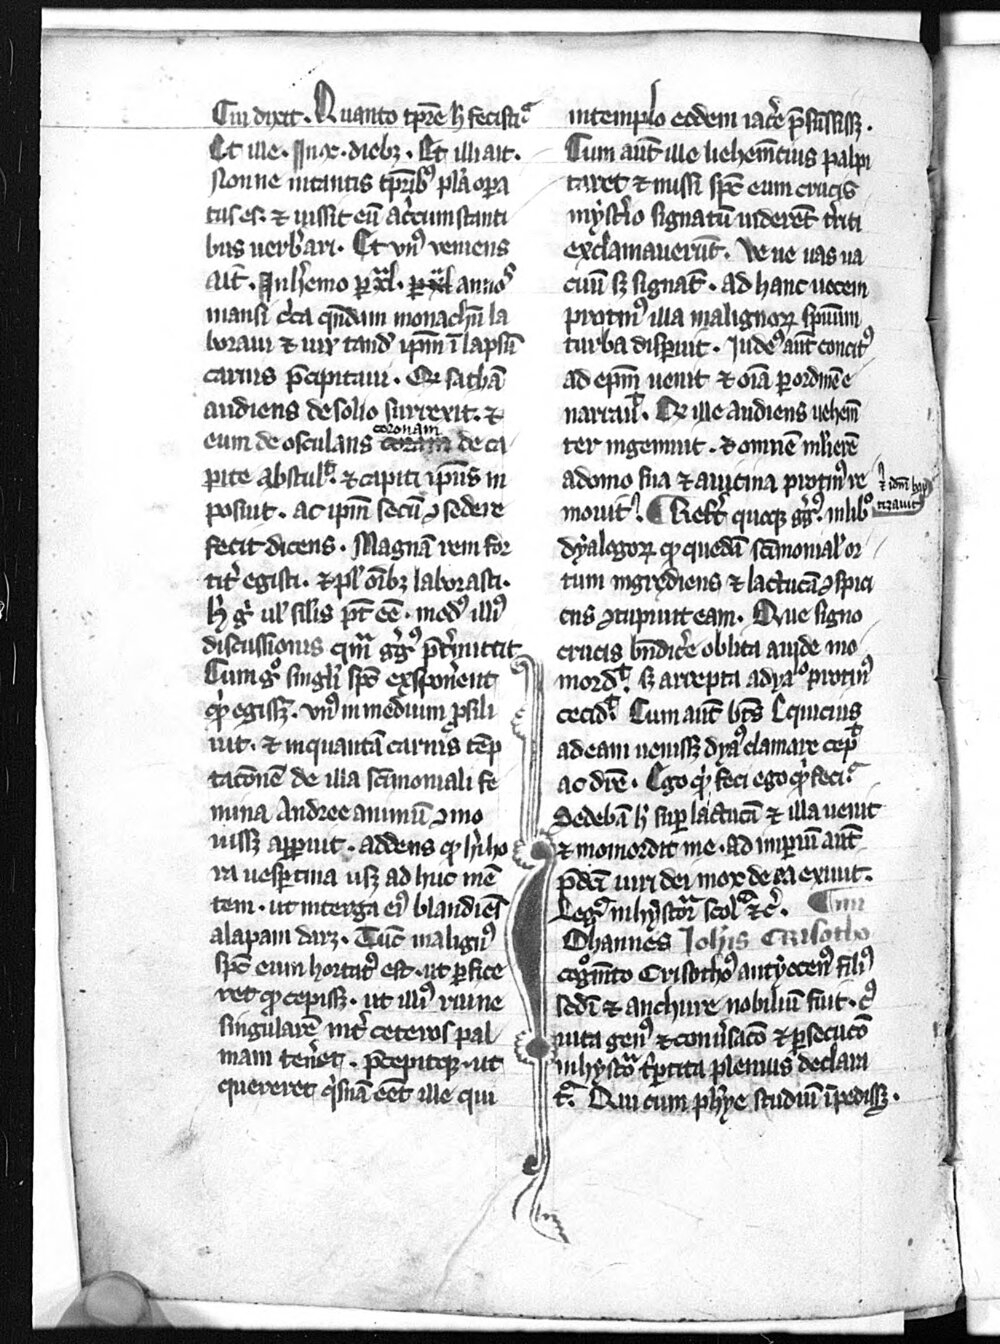 Cui dixit. Quanto tp̄re h̄ fecisti?
Et ille. In .x. dieb3. Et illi ait.
Nonne in tantis tp̄rib9 pl̉a oꝑa
tus es. ⁊ iussit eū a c̓cumstanti
bus uerb̓ari. Et vn9 veniens
ait. In h̓emo ꝑ .xl. annos
mansi c̓ca qn̄dam monachū la
boraui ⁊ uix tand̓ ip̄m ī lapsū
carnis p̄cipitaui. Qr̄ sathā
audiens de solio surrexit. ⁊
eum de osculans coronam de ca
pite abstul̓. ⁊ capiti ip̄ius in
posuit. ac ip̄m secū ꝯsedere
fecit dicens. Magnā rem for
tit̓ egisti. ⁊ pl9 oīb3 laborasti.
h̓ g̓ ul̓ sīlis pt̄ eē. mod9 illi9
discussionis qm̄ gḡ9 p̄t̓mittit.
Cum g̊ singl̓i sp̄c exponerent
qd̓ egiss3. vn9 in medium ꝓsili
uit. ⁊ in quantā carnis tēp
tac̄onē de illa sc̄imoniali fe
mina Andree animū ꝯmo
uiss3 aꝑuit. addens qd̓ h̓ ho
ra uesꝑtina usq3 ad huc mē
tem. ut in terga ei9 blandiēs
alapam dar3. Tūc malign9
sp̄c eum hortat9 est. ut ꝑfice
ret qd̓ cepiss3. ut illi9 ruine
singularē int̓ ceteros pal
mam ten̓et. p̄cepitq3 ut
quereret q̓snā eēt ille qui
in templo eodem iac̓e p̄sūpsiss3.
Cum aūt ille uehem̄tius palpi
taret ⁊ missi sp̄c eum crucis
myst̓io signatū uiderēt t̓riti
exclamauerūt. Ve ue uas ua
cuū s3 signat̄. ad hanc uocem
protin9 illa malignoꝝ sp̄uum
turba disꝑuit. Iude9 aūt concit9
ad ep̄m uenit ⁊ oīa ꝑ ordinē e
narrauit. Qr̄ ille audiens uehem̄
ter ingemuit. ⁊ omnē mlierē
a domo sua ⁊ a uicina protin9 re
⁊ idm̄ bap
tizauit
mouit. Refert quoq3 gḡ9 in lib̊
dyalogoꝝ qd̓ quedā sc̄imonial̓ or
tum ingrediens ⁊ lactucā ꝯspici
ens ꝯcupiuit eam. Que signo
crucis bn̄dic̓e oblita auide mo
mordit. s3 arrepta a dyabolo protin9
cecidit. Cum aūt bt̄s Equicius
ad eam uenisset dya9 clamare cepit
ac dīc̄e. Ego qd̓ feci ego qd̓ feci?
Sedebā h̓ suꝑ lactucā ⁊ illa uenit
⁊ momordit me. ad imperiū aūt
p̄dc̄i uiri dei mox de ea exiuit.
Leg̓ in hystor̓ scol̓ ⁊c̄.
Ohannes Ioh̓is Crisosto
cogn̄to Crisostom9 antyocen9 fili9
sed̄i ⁊ anthure nobiliū fuit. c9
uita gen9 ⁊ conu̓sac̄o ⁊ ꝑsecuc̄o
in hyst̓a t̓ptita plenius declara
t̄. Qui cum ph̓ye studiū īpediss3.